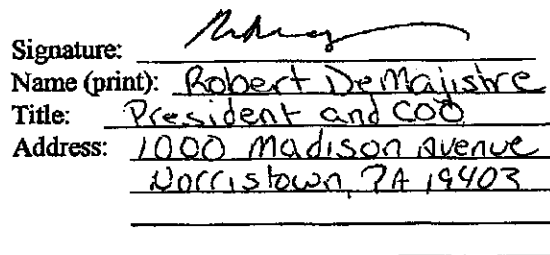 Signature:
Name (print): Robert DeMajistre
Title: President and COO
Address: 1000 Madison Avenue
Norristown, PA 19403